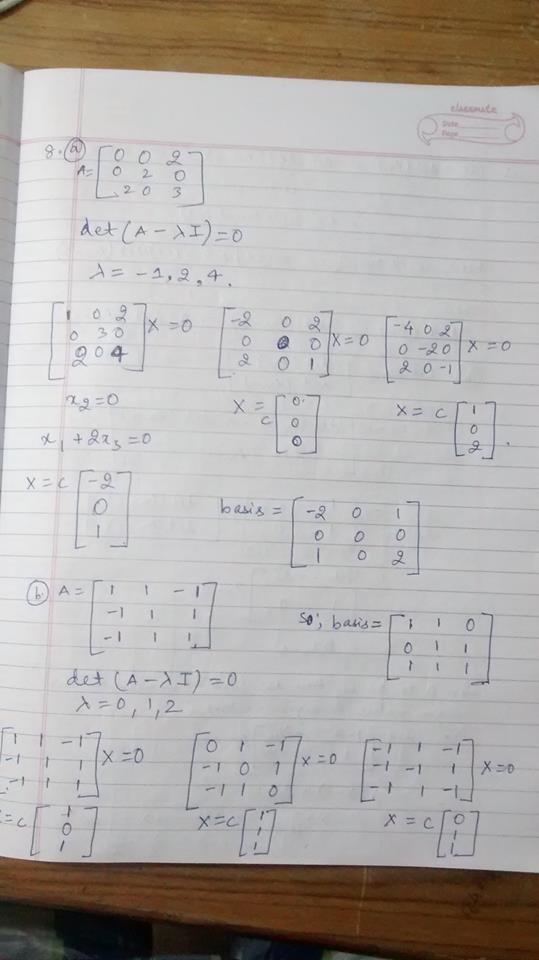 classmate
Date
Page
8. (a) A = [0 0 2; 0 2 0; 2 0 3]
det (A - λI) = 0
λ = -1, 2, 4.
[1 0 2; 0 3 0; 2 0 4] X = 0 [-2 0 2; 0 0 0; 2 0 1] X = 0 [-4 0 2; 0 -2 0; 2 0 -1] X = 0
x2 = 0 X = c [0; 0; 0] X = c [1; 0; 2].
x1 + 2x3 = 0
X = c [-2; 0; 1] basis = [-2 0 1; 0 0 0; 1 0 2]
(b) A = [1 1 -1; -1 1 1; -1 1 1] So; basis = [1 1 0; 0 1 1; 1 1 1]
det (A - λI) = 0
λ = 0, 1, 2
[1 1 -1; -1 1 1; -1 1 1] X = 0 [0 1 -1; -1 0 1; -1 1 0] X = 0 [-1 1 -1; -1 -1 1; -1 1 -1] X = 0
= c [1; 0; 1] X = c [1; 1; 1] X = c [0; 1; 1]